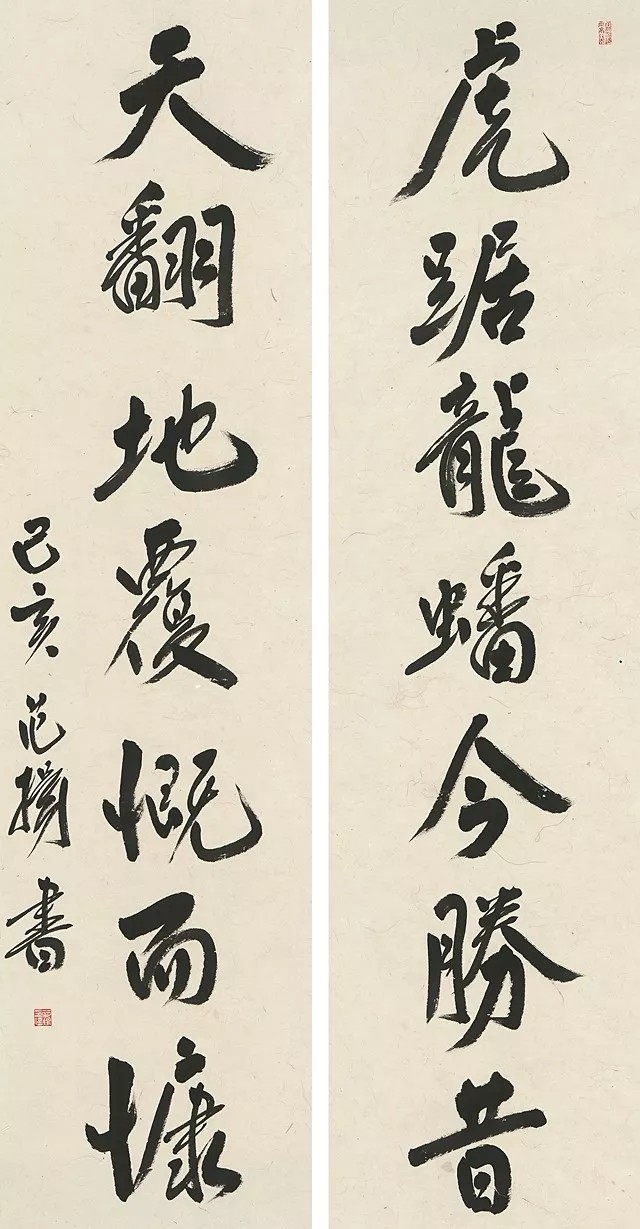 虎踞龍蟠今勝昔
天翻地覆慨而慷
己亥 范 書